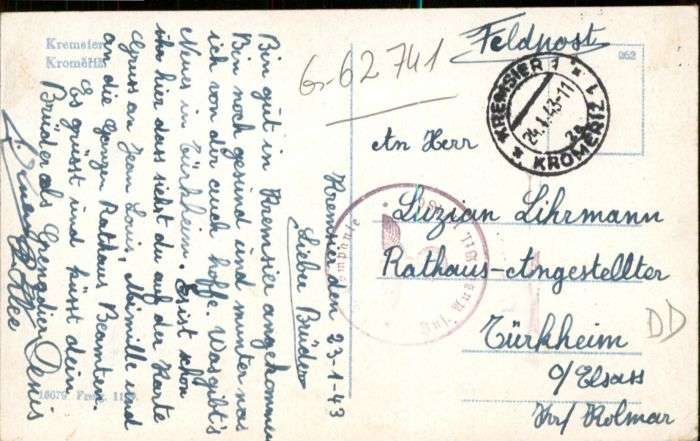 Kremsier
Kroměříž
G-62741
Feldpost
952
KREMSIER 1
24.1.43-11
2a
KROMĚŘÍŽ 1
Kremsier den 23-1-43
Lieber Brüder
Bin gut in Kremsier angekommen
Bin noch gesund und munter was
ich von dir auch hoffe. Was gibt's
Neues in Türkheim. Es ist schön
ihr hier das siehst du auf der Karte
Gruss an Jean Louis, und
an die Ganzen Rathaus Beamten.
Es grüsst und küsst dein
Brüder als Grenadier Denis
An Herr
Luzian Lihrmann
Rathaus-Angestellter
Türkheim
o/Elsass
Kr/ Kolmar
DD